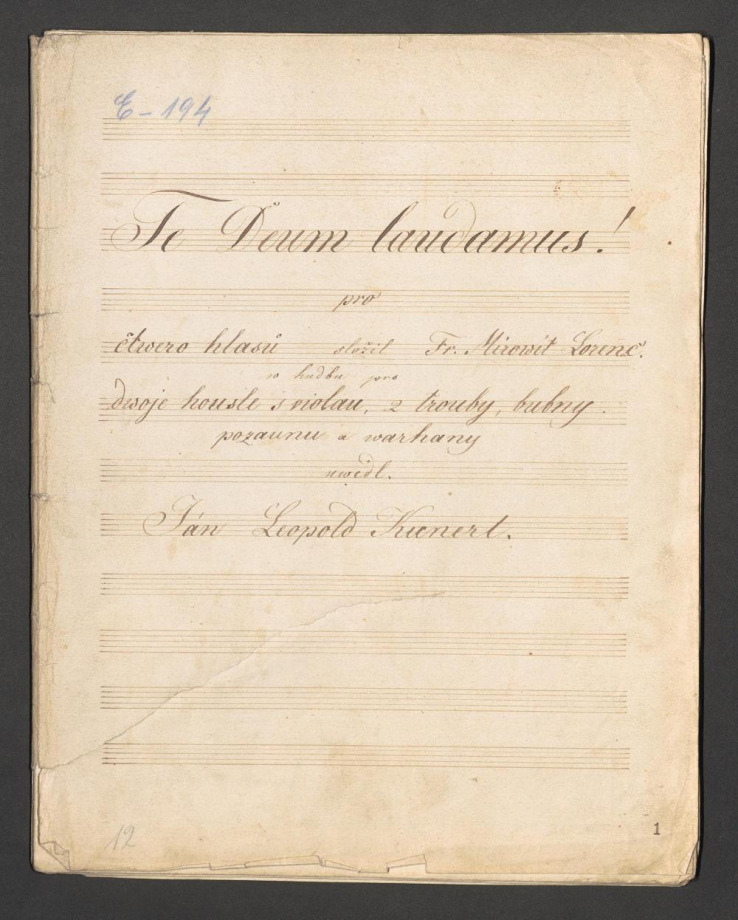 E-194
Te Deum laudamus!
pro
čtwero hlasů složil Fr. Mirowít Lorenc.
w hudbu pro
dwoje housle s violau, 2 trouby, bubny.
pozaunu a warhany
uwedl.
Ján Leopold Kunert.
12
1